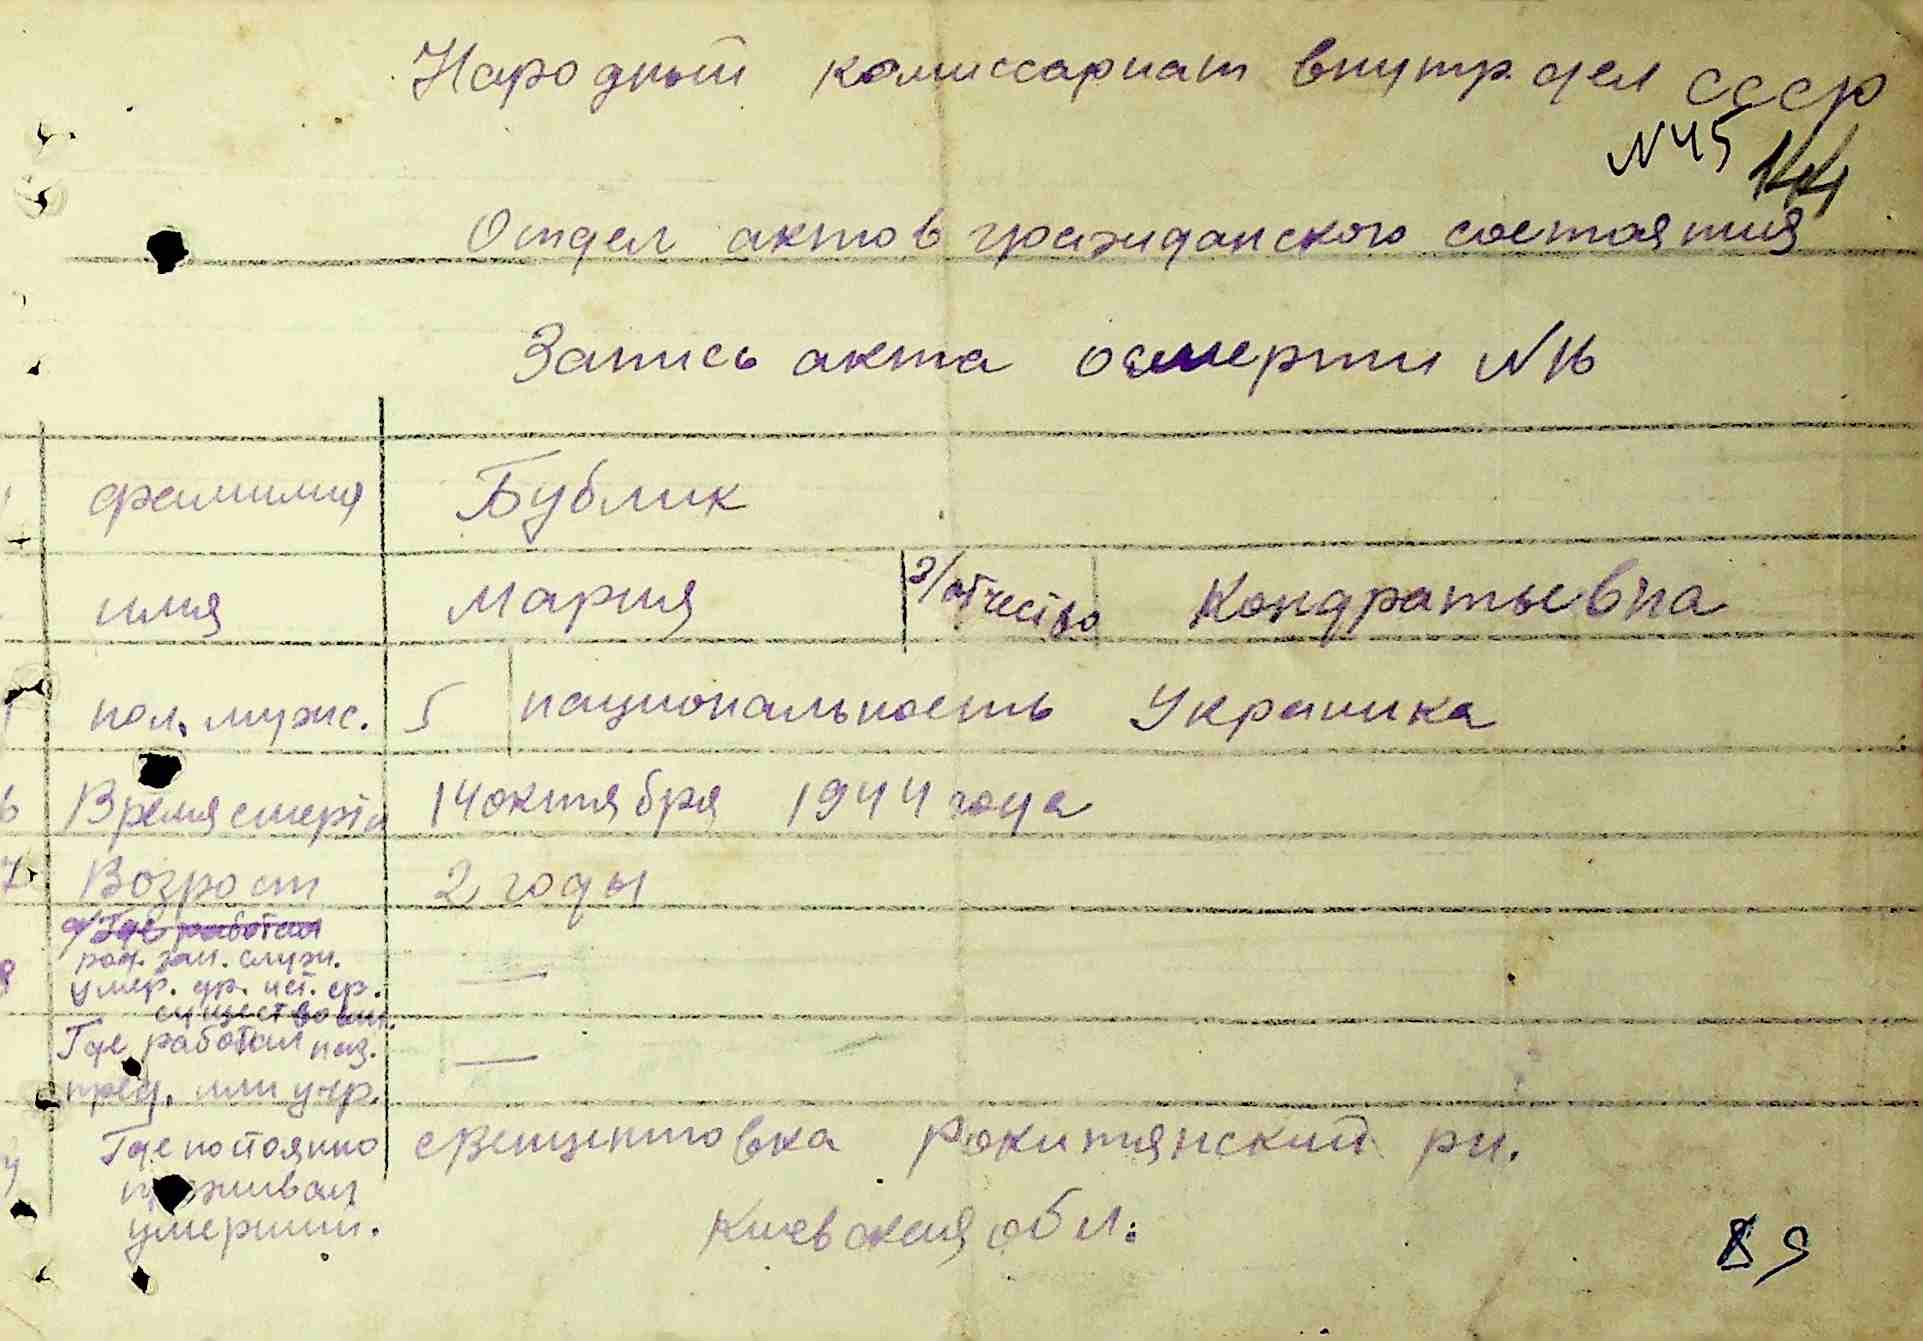 Народный комиссариат внутр. дел СССР
N 45 144
Отдел актов гражданского состояния
Запись акта о смерти N 16
фамилия Бублик
имя Мария 3/ отчество Кондратьевна
пол. мужс. 5 национальность Украинка
6 Время смерти 14 октября 1944 года
7 Возраст 2 годы
а/ Где работал
8 род. зан. служ.
умер. др. ист. ср. —
существован.
Где работал наз. —
пред. или учр.
Где постоянно Рокитянский рн.
проживал
умерший. Киевская обл.
89